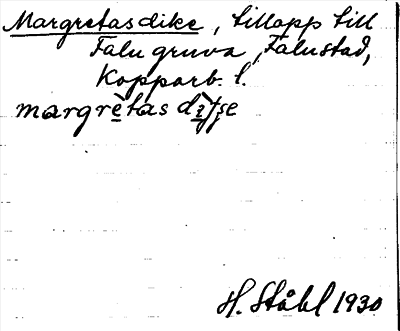 Margretasdike, tillopp till
Falu gruva, Falu stad,
Kopparb. l.
margrètas
H. Ståhl 1930